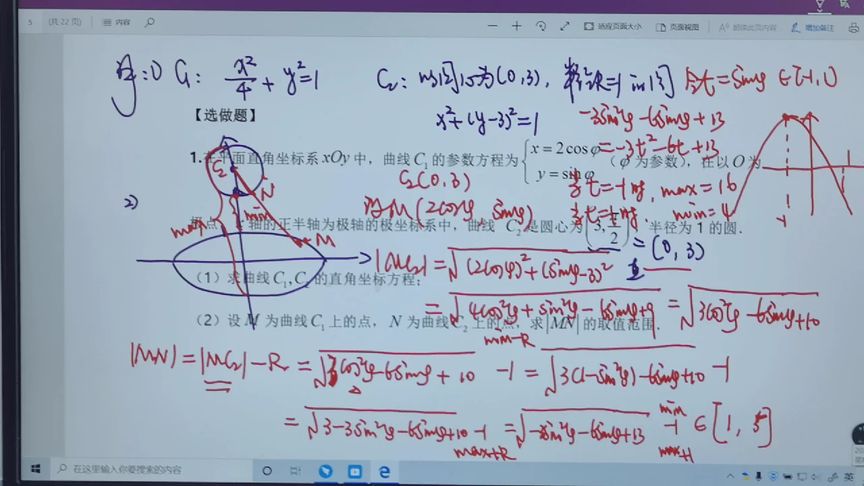 5 (共 22 页) 内容
适应页面大小 页面视图 朗读此页内容 增加备注
C₁: x²/4 + y²=1
C₂: 圆心为(0,3), 半径R=1 in 圆
令t=sinφ ∈[-1,1]
x²+(y-3)²=1
-3sin²φ-6sinφ+13
【选做题】
=-3t²-6t+13
1.在平面直角坐标系 xOy 中，曲线 C₁ 的参数方程为 { x = 2cosφ y = sinφ (φ 为参数)，在以 O 为
C₂(0,3)
当t=-1时, max=16
2)
设M(2cosφ, sinφ)
当t=1时, min=4
max min N M C₂
轴的正半轴为极轴的极坐标系中，曲线 C₂ 是圆心为 (3, π/2) 半径为 1 的圆.
=(0,3)
|MC₂|=√(2cosφ)²+(sinφ-3)²
（1）求曲线 C₁,C₂ 的直角坐标方程；
=√4cos²φ+sin²φ-6sinφ+9 =√3cos²φ-6sinφ+10
（2）设 M 为曲线 C₁ 上的点，N 为曲线 C₂ 上的点，求 |MN| 的取值范围.
min-R
|MN|=|MC₂|-R=√3cos²φ-6sinφ+10 -1=√3(1-sin²φ)-6sinφ+10 -1
=√3-3sin²φ-6sinφ+10 -1 =√-3sin²φ-6sinφ+13 -1 ∈[1,5]
min
max+R
max+1
在这里输入你要搜索的内容
英